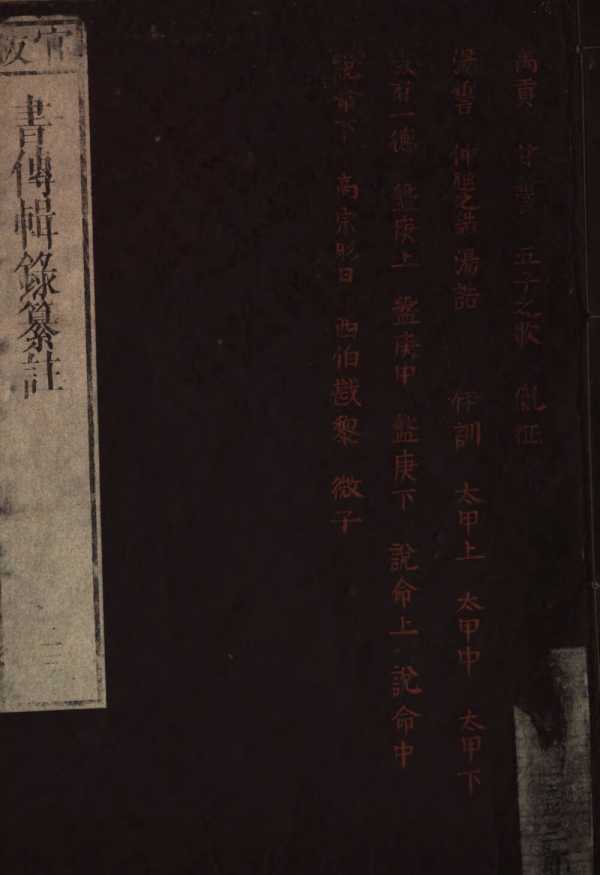 禹貢 甘誓 五子之歌 胤征
湯誓 仲虺之誥 湯誥 伊訓 太甲上 太甲中 太甲下
咸有一德 盤庚上 盤庚中 盤庚下 說命上 說命中
說命下 高宗肜日 西伯戡黎 微子
官板
書傳輯錄纂註
二